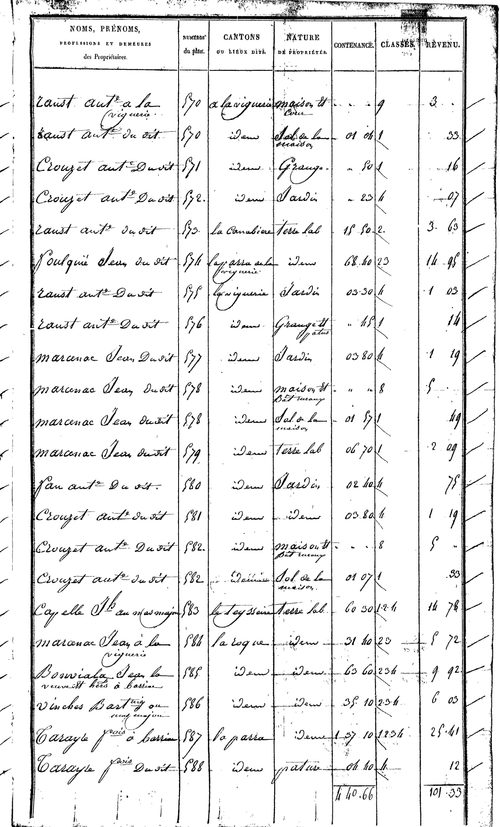 NOMS, PRÉNOMS, PROFESSIONS ET DEMEURES des Propriétaires. NUMÉROS du plan. CANTONS OU LIEUX DITS. NATURE DE PROPRIÉTÉS. CONTENANCE. CLASSES. REVENU.
raust ant.e a la viguerie 570 a la viguerie maison et cour " " " 9 3 "
raust ant.e du dit 570 idem Sol de la maison 01 06 1 33
Crouzet ant.e Du dit 571 idem Grange " 50 1 16
Crouzet ant.e Du dit 572. idem Jardin " 23 4 07
raust ant.e du dit 573 la Canabiere terre lab 15 50 2. 3. 63
foulquié Jean du dit 574 la parra de la viguerie idem 68 40 23 14 95
raust ant.e Du dit 575 la viguerie Jardin 03 30 4 1 03
raust ant.e Du dit 576 idem Grange et patus " 45 1 14
marcenac Jean Du dit 577 idem Jardin 03 80 4 1 19
marcenac Jean du dit 578 idem maison et Bat ruraux " " " 8 5
marcenac Jean du dit 578 idem Sol de la maison 01 57 1 49
marcenac Jean du dit 579 idem terre lab 06 70 1 2 09
fau ant.e Du dit. 580 idem Jardin 02 40 4 75
Crouzet ant.e du dit 581 idem idem 03 80 4 1 19
Crouzet ant.e Du dit 582. idem maison et Bat ruraux " " " 8 5 "
Crouzet ant.e du dit 582 idem Sol de la maison 01 07 1 33
Capelle J.h au mas majou 583 le teysseire terre lab. 60 30 124 14 78
marcenac Jean à la viguerie 584 la roque idem 31 40 23 5 72
Bonviala Jean la veuve et hérs à Carrieu 585 idem idem 63 60 234 9 92
vinches Bart.my au mas majou 586 idem idem 35 10 234 6 03
Tarayre f.rois à Carrieu 587 la parra idem 1 37 10 1234 25 41
Tarayre f.rois Du dit 588 idem pature 04 40 4 12
4 40.66 101 33